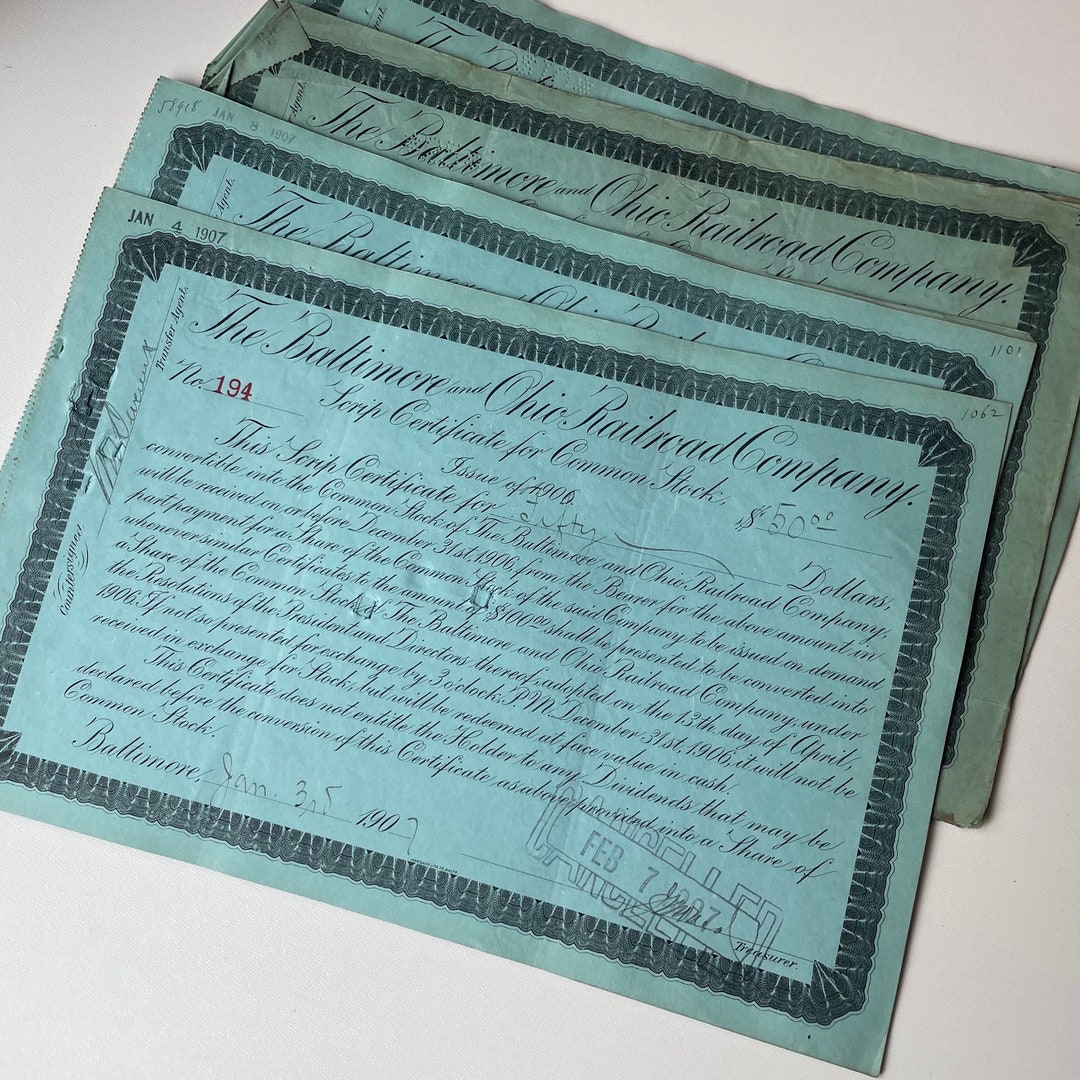 Agent.
The
Agent.
The Baltimore and Ohio Railroad Company.
58918 JAN 8 1907
Agent.
The Baltimore Ohio Railroad
1101
JAN 4 1907
1062
Transfer Agent.
Countersigned
The Baltimore and Ohio Railroad Company.
No. 194
Scrip Certificate for Common Stock,
Issue of 1906
$ 50.00
This Scrip Certificate for Fifty Dollars,
convertible into the Common Stock of The Baltimore and Ohio Railroad Company,
will be received on or before December 31st, 1906, from the Bearer for the above amount in
part payment for a Share of the Common Stock of the said Company to be issued on demand
whenever similar Certificates to the amount of $100.00 shall be presented to be converted into
a Share of the Common Stock of The Baltimore and Ohio Railroad Company, under
the Resolutions of the President and Directors thereof, adopted on the 13th day of April,
1906. If not so presented for exchange by 3 o'clock P.M. December 31st, 1906, it will not be
received in exchange for Stock, but will be redeemed at face value in cash.
This Certificate does not entitle the Holder to any Dividends that may be
declared before the conversion of this Certificate as above provided into a Share of
Common Stock.
Baltimore, Jan. 3rd 1907
CANCELLED
FEB 7 1907
CANCELLED
Treasurer.